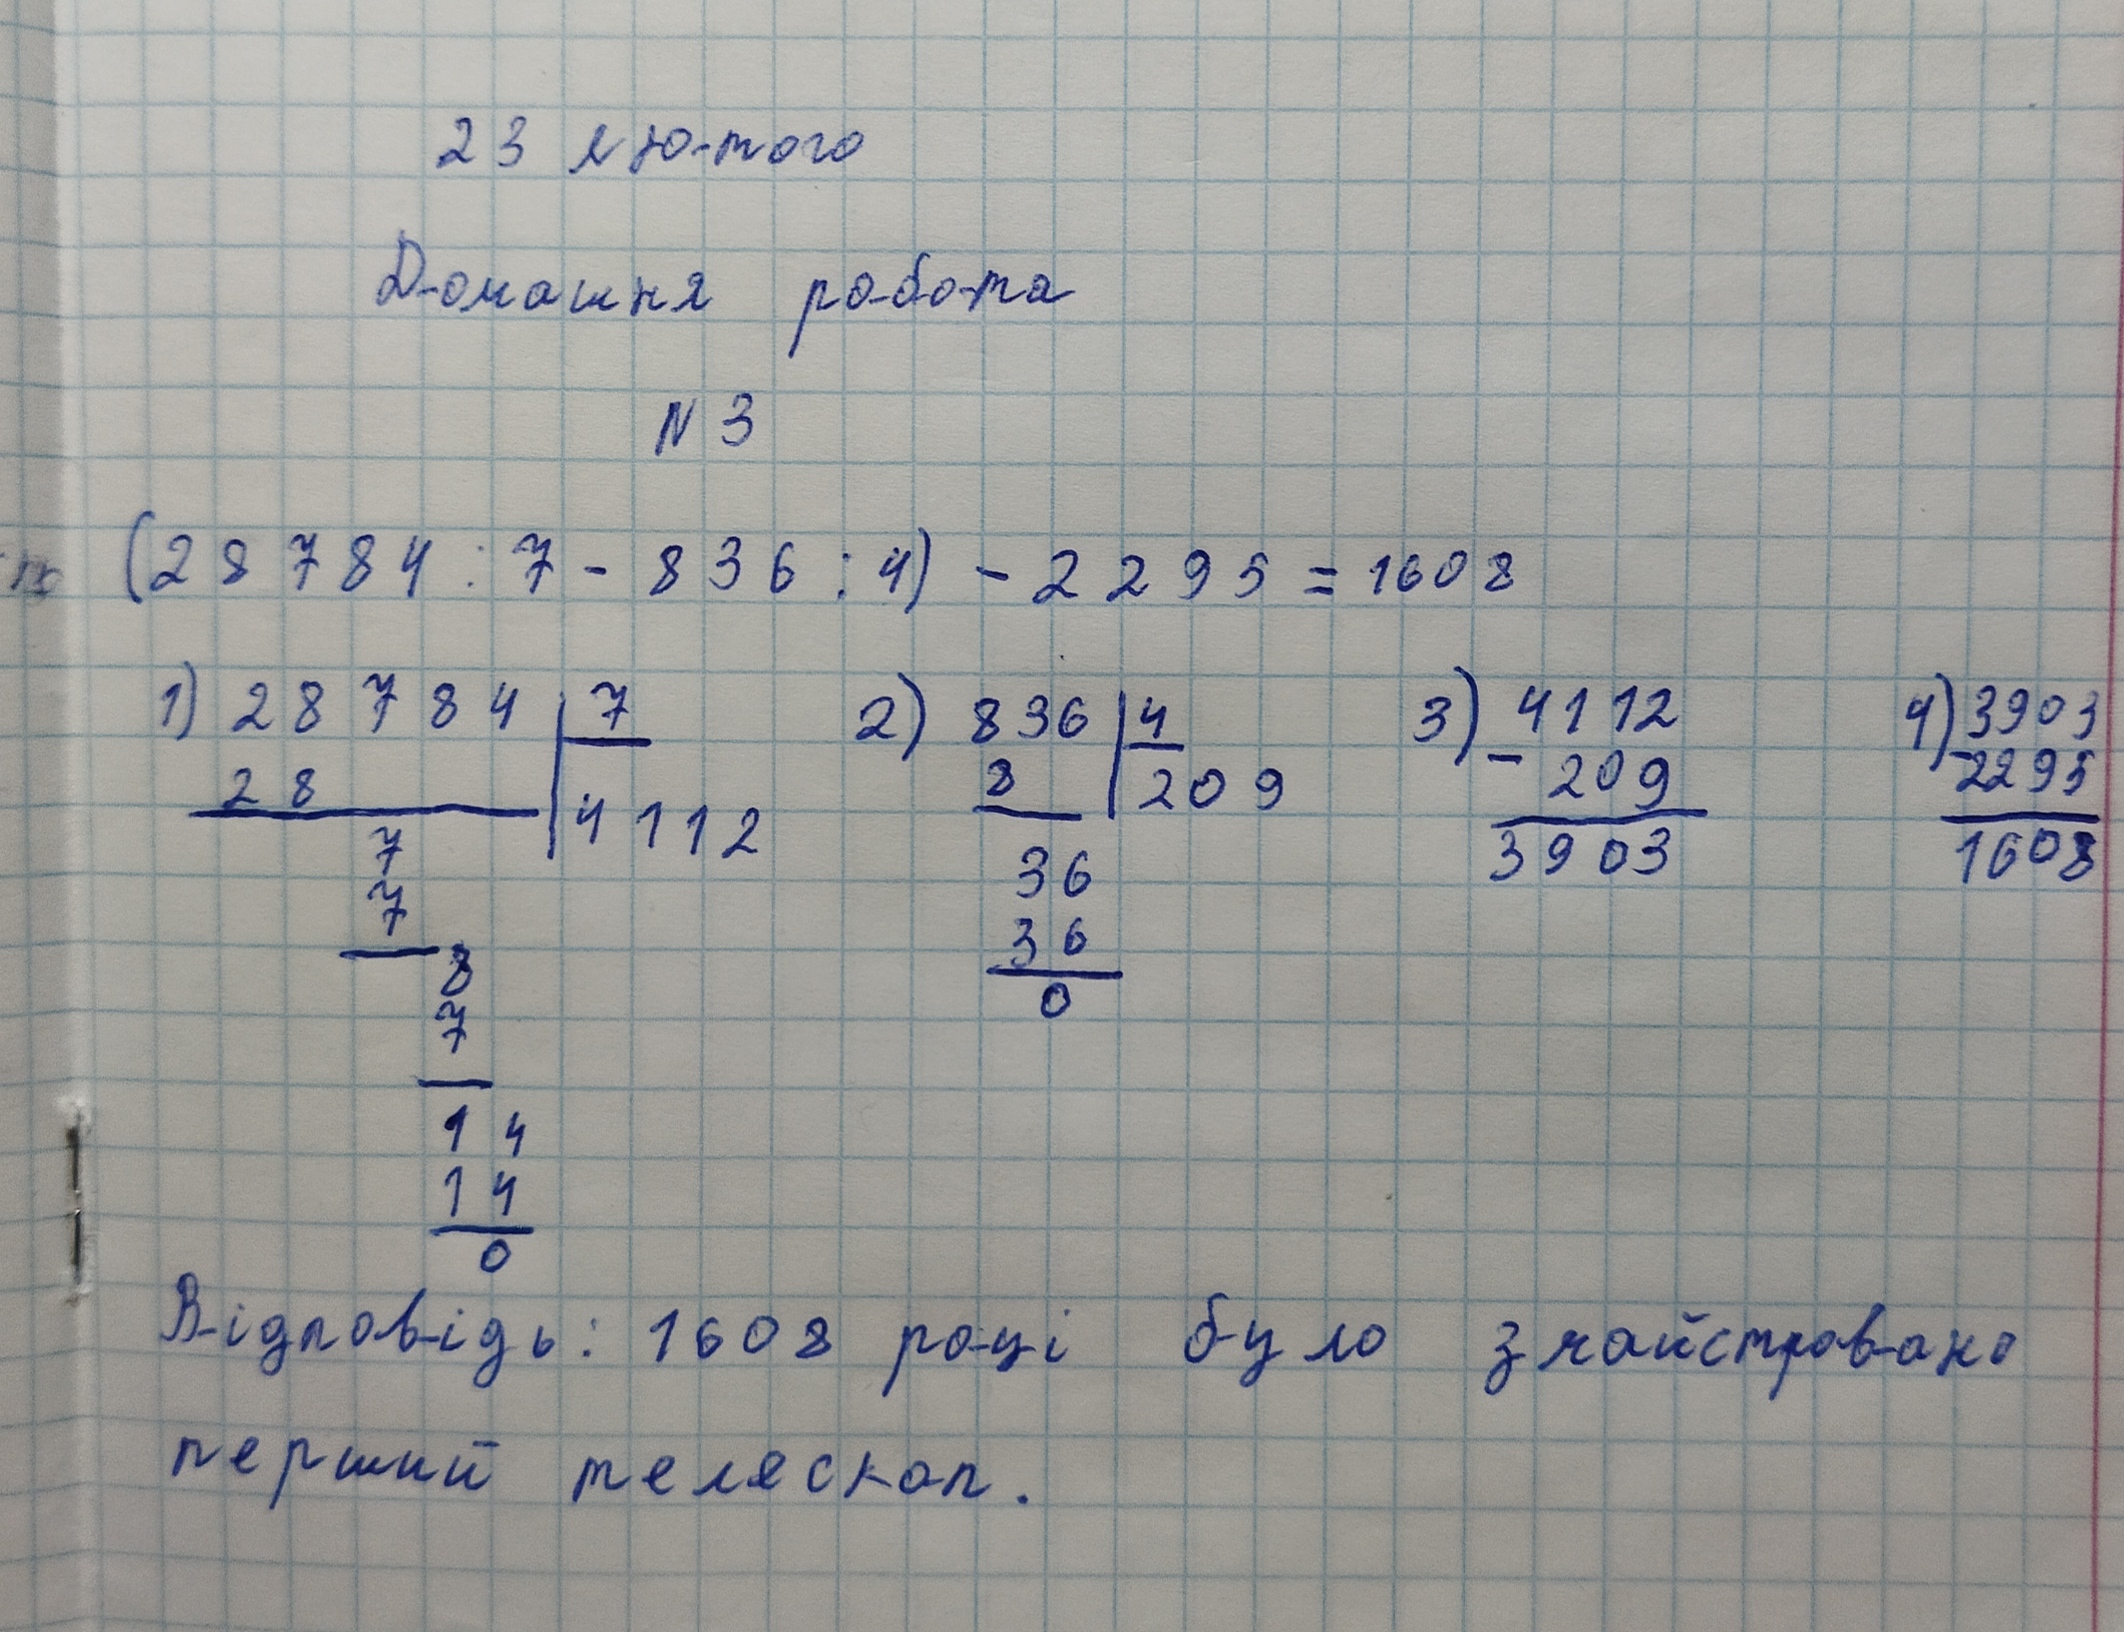 23 лютого
Домашня робота
N 3
(28784 : 7 - 836 : 4) - 2295 = 1608
1) 28784 | 7 2) 836 | 4 3) 4112 4) 3903
28 4112 8 209 - 209 - 2295
7 36 3903 1608
7 36
8 0
7
14
14
0
Відповідь: 1608 році було змайстровано
перший телескоп.